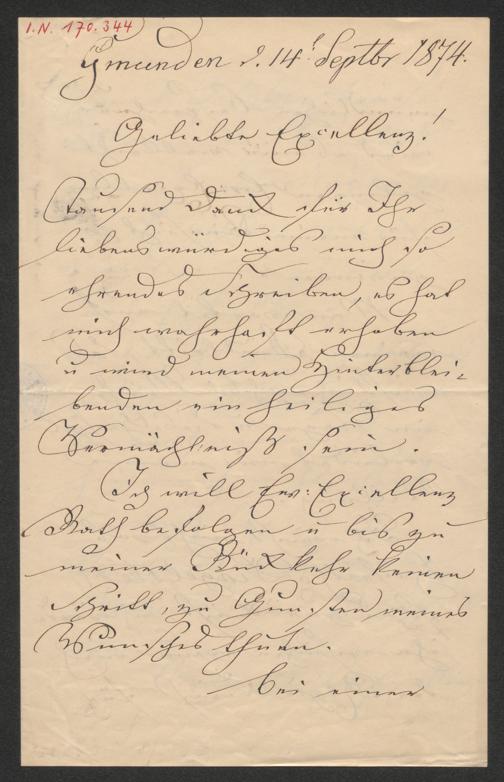 I.N. 170.344
Gmunden d. 14t Septbr 1874.
Geliebte Excellenz!
Tausend Dank für Ihr
liebenswürdiges mich so
ehrendes Schreiben, es hat
mich wahrhaft erhoben
u wird meinen Hinterblei-
benden ein heiliges
Vermächtniß sein.
Ich will Euer: Excellenz
Rath befolgen u bis zu
meiner Rückkehr keinen
Schritt, zu Gunsten meines
Wunsches thun.
Bei einer